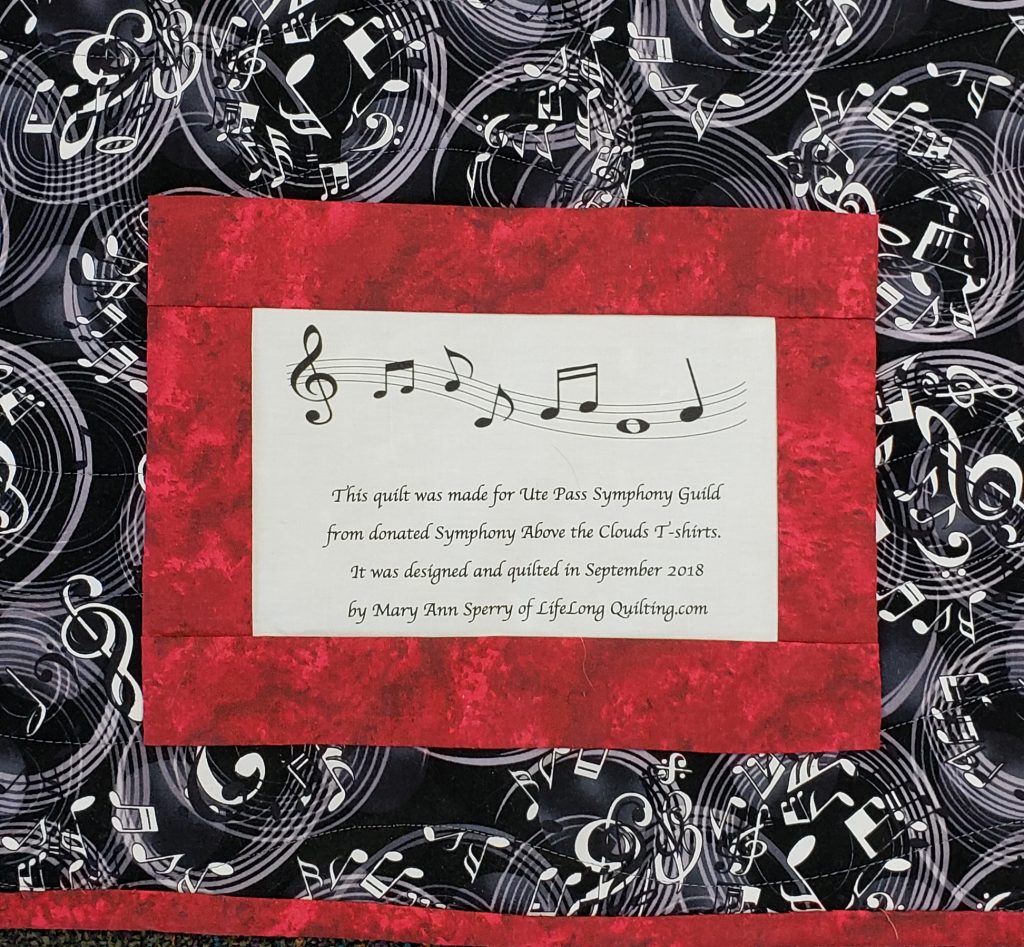 This quilt was made for Ute Pass Symphony Guild
from donated Symphony Above the Clouds T-shirts.
It was designed and quilted in September 2018
by Mary Ann Sperry of LifeLong Quilting.com